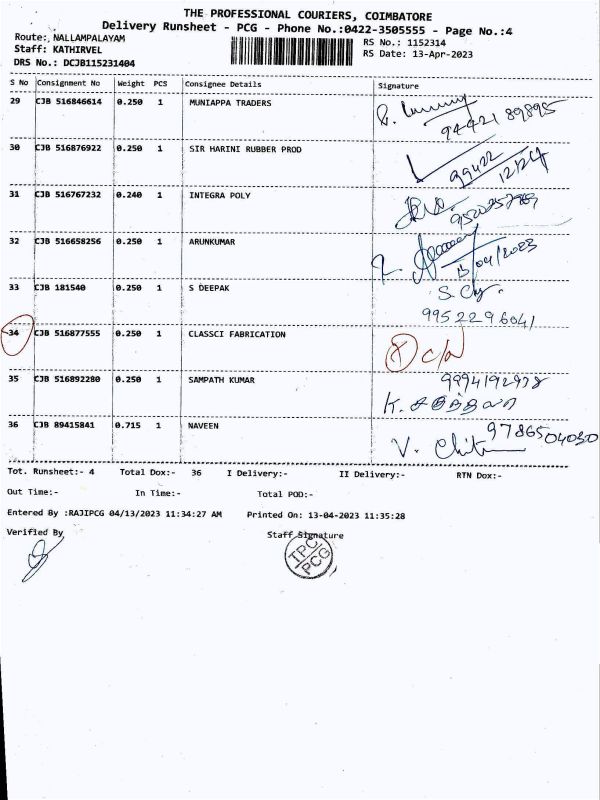 THE PROFESSIONAL COURIERS, COIMBATORE
Delivery Runsheet - PCG - Phone No.:0422-3505555 - Page No.:4
Route:. NALLAMPALAYAM
RS No.: 1152314
Staff: KATHIRVEL
RS Date: 13-Apr-2023
DRS No.: DCJB115231404
S No Consignment No Weight PCS Consignee Details Signature
29 CJB 516846614 0.250 1 MUNIAPPA TRADERS
94421 89895
30 CJB 516876922 0.250 1 SIR HARINI RUBBER PROD
99422
31 CJB 516767232 0.240 1 INTEGRA POLY
32 CJB 516658256 0.250 1 ARUNKUMAR
13/04/2023
33 CJB 181540 0.250 1 S DEEPAK
9952296041
34 CJB 516877555 0.250 1 CLASSCI FABRICATION
35 CJB 516892280 0.250 1 SAMPATH KUMAR
9994192978
K. சகுந்தலா
36 CJB 89415841 0.715 1 NAVEEN
9786504030
Tot. Runsheet:- 4 Total Dox:- 36 I Delivery:- II Delivery:- RTN Dox:-
Out Time:- In Time:- Total POD:-
Entered By :RAJIPCG 04/13/2023 11:34:27 AM Printed On: 13-04-2023 11:35:28
Verified By Staff Signature
TPC
PCG